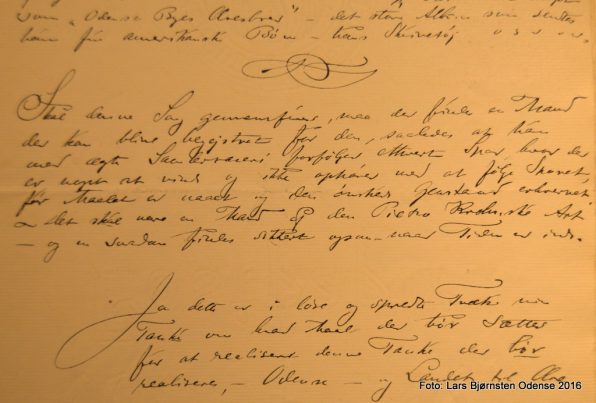 som "Odense Byes Æresbrev" – det store Album som sendtes
ham fra amerikanske Børn – hans Skrivetøj o s v o s v.
Skal denne Sag gennemføres, maa der findes en Mand
der kan blive begejstret for den, saaledes at han
med ægte Samlerværens forfølger ethvert Spor, hvor der
er noget at vinde og ikke ophører med at følge Sporet,
før Maalet er naaet og den ønskede Genstand erhvervet
det skal være en Mand af den Pietro Krohnske Art
– og en saadan findes sikkert ogsaa – naar Tiden er inde.
Ja dette er i løse og spredte Træk min
Tanke om hvad Maal der bør sættes
for at realisere denne Tanke der bør
realiseres, – Odense – og Landet til Ære
Foto: Lars Bjørnsten Odense 2016